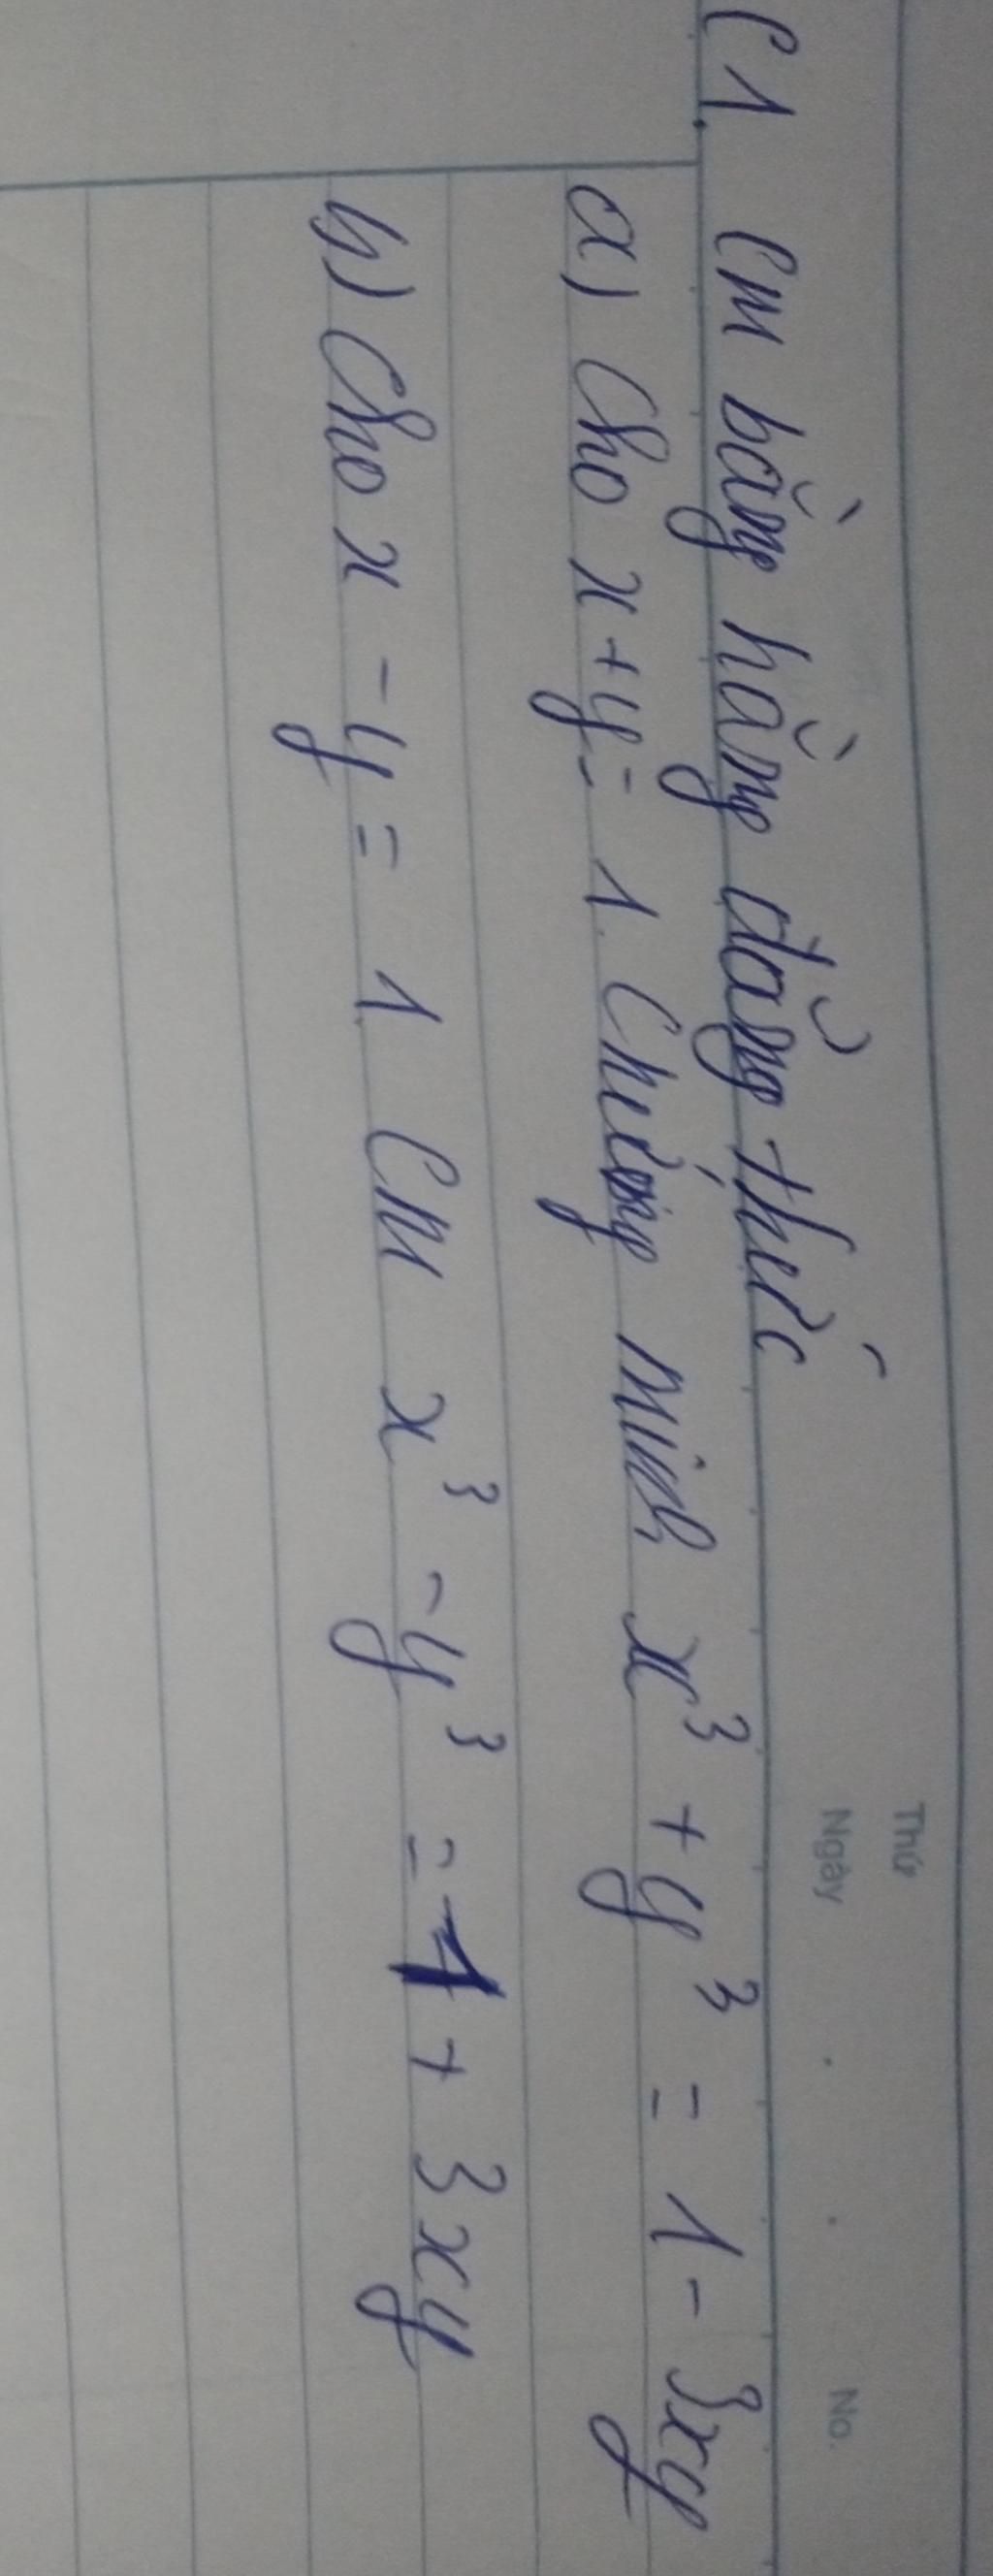 Thứ
Ngày No.
C1. Cm bằng hằng đẳng thức
a) Cho x + y = 1. Chứng minh x³ + y³ = 1 - 3xy
b) Cho x - y = 1. Cm x³ - y³ = 1 + 3xy